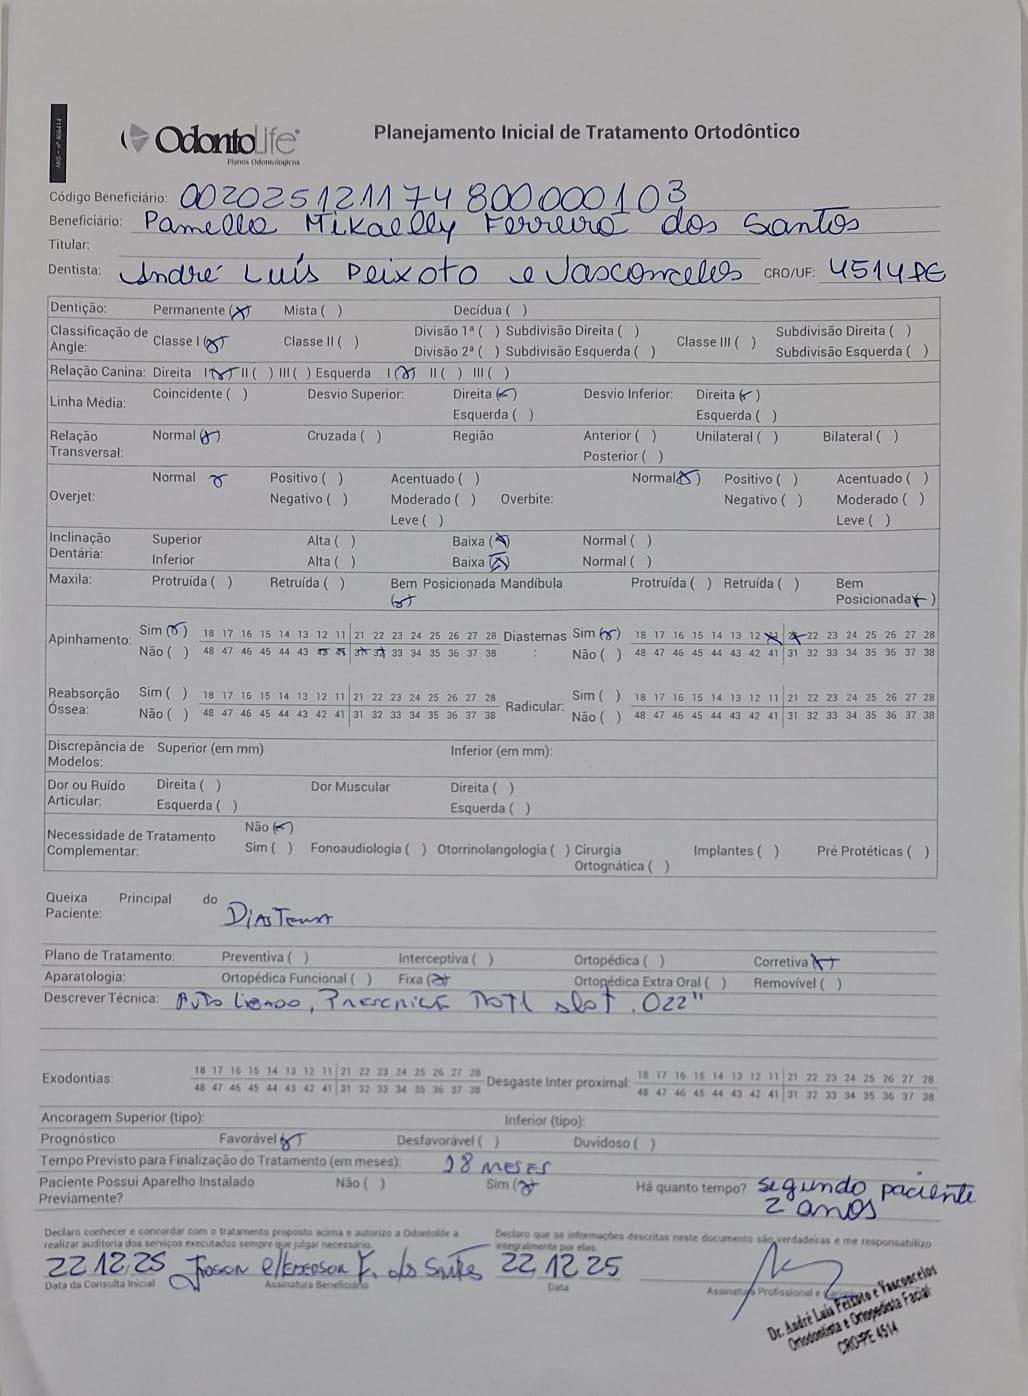 ANS - nº 406414
OdontoLife
Planos Odontológicos
Planejamento Inicial de Tratamento Ortodôntico
Código Beneficiário: 002025121174800000103
Beneficiário: Pamella Mikaelly Ferreira dos Santos
Titular:
Dentista: André Luís Peixoto e Vasconcelos CRO/UF: 4514 PE
Dentição: Permanente (X) Mista ( ) Decídua ( )
Classificação de Angle: Classe I (X) Classe II ( ) Divisão 1ª ( ) Subdivisão Direita ( ) Classe III ( ) Subdivisão Direita ( )
Divisão 2ª ( ) Subdivisão Esquerda ( ) Subdivisão Esquerda ( )
Relação Canina: Direita I (X) II ( ) III ( ) Esquerda I (X) II ( ) III ( )
Linha Média: Coincidente ( ) Desvio Superior: Direita (X) Desvio Inferior: Direita (X)
Esquerda ( ) Esquerda ( )
Relação Transversal: Normal (X) Cruzada ( ) Região Anterior ( ) Unilateral ( ) Bilateral ( )
Posterior ( )
Overjet: Normal X Positivo ( ) Acentuado ( ) Overbite: Normal (X) Positivo ( ) Acentuado ( )
Negativo ( ) Moderado ( ) Negativo ( ) Moderado ( )
Leve ( ) Leve ( )
Inclinação Dentária: Superior Alta ( ) Baixa (X) Normal ( )
Inferior Alta ( ) Baixa (X) Normal ( )
Maxila: Protruída ( ) Retruída ( ) Bem Posicionada (X) Mandíbula Protruída ( ) Retruída ( ) Bem Posicionada (X)
Apinhamento: Sim (X) 18 17 16 15 14 13 12 11 21 22 23 24 25 26 27 28 Diastemas: Sim (X) 18 17 16 15 14 13 12 11 21 22 23 24 25 26 27 28
Não ( ) 48 47 46 45 44 43 42 41 31 32 33 34 35 36 37 38 Não ( ) 48 47 46 45 44 43 42 41 31 32 33 34 35 36 37 38
Reabsorção Óssea: Sim ( ) 18 17 16 15 14 13 12 11 21 22 23 24 25 26 27 28 Radicular: Sim ( ) 18 17 16 15 14 13 12 11 21 22 23 24 25 26 27 28
Não ( ) 48 47 46 45 44 43 42 41 31 32 33 34 35 36 37 38 Não ( ) 48 47 46 45 44 43 42 41 31 32 33 34 35 36 37 38
Discrepância de Modelos: Superior (em mm) Inferior (em mm):
Dor ou Ruído Articular: Direita ( ) Dor Muscular Direita ( )
Esquerda ( ) Esquerda ( )
Necessidade de Tratamento Complementar: Não (X)
Sim ( ) Fonoaudiologia ( ) Otorrinolangologia ( ) Cirurgia Ortognática ( ) Implantes ( ) Pré Protéticas ( )
Queixa Principal do Paciente: Diastema
Plano de Tratamento: Preventiva ( ) Interceptiva ( ) Ortopédica ( ) Corretiva (X)
Aparatologia: Ortopédica Funcional ( ) Fixa (X) Ortopédica Extra Oral ( ) Removível ( )
Descrever Técnica: Auto Ligado, Prescrição Roth slot .022"
Exodontias: 18 17 16 15 14 13 12 11 21 22 23 24 25 26 27 28 Desgaste Inter proximal: 18 17 16 15 14 13 12 11 21 22 23 24 25 26 27 28
48 47 46 45 44 43 42 41 31 32 33 34 35 36 37 38 48 47 46 45 44 43 42 41 31 32 33 34 35 36 37 38
Ancoragem Superior (tipo): Inferior (tipo):
Prognóstico Favorável (X) Desfavorável ( ) Duvidoso ( )
Tempo Previsto para Finalização do Tratamento (em meses): 18 meses
Paciente Possui Aparelho Instalado Previamente? Não ( ) Sim (X) Há quanto tempo? segundo paciente
2 anos
Declaro conhecer e concordar com o tratamento proposto acima e autorizo a Odontolife a
realizar auditoria dos serviços executados sempre que julgar necessário.
Declaro que as informações descritas neste documento são verdadeiras e me responsabilizo
integralmente por elas.
22 12 25 F. dos Santos 22 12 25
Data da Consulta Inicial Assinatura Beneficiário Data Assinatura Profissional e Carimbo
Dr. André Luís Peixoto e Vasconcelos
Ortodontista e Ortopedista Facial
CRO-PE 4514